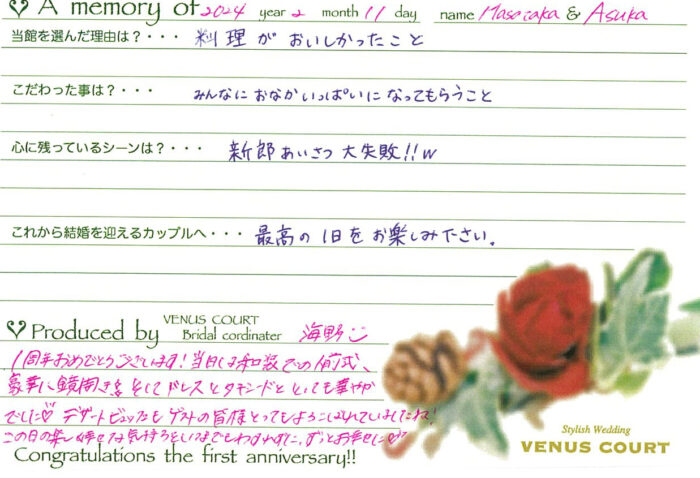 A memory of 2024 year 2 month 11 day name Masataka & Asuka
当館を選んだ理由は?・・・ 料理がおいしかったこと
こだわった事は?・・・ みんなにおなかいっぱいになってもらうこと
心に残っているシーンは?・・・ 新郎あいさつ大失敗!!w
これから結婚を迎えるカップルへ・・・ 最高の1日をお楽しみ下さい。
Produced by VENUS COURT
Bridal cordinater 海野
1周年おめでとうございます!当日は和装での人前式、
豪華に鏡開き!そしてドレスとタキシードととても華やか
でした♡デザートビュッフェもゲストの皆様とってもよろこばれていましたね!
この日の楽しい幸せな気持ちをいつまでもわすれずに、ずっとお幸せに♡
Congratulations the first anniversary!!
Stylish Wedding
VENUS COURT